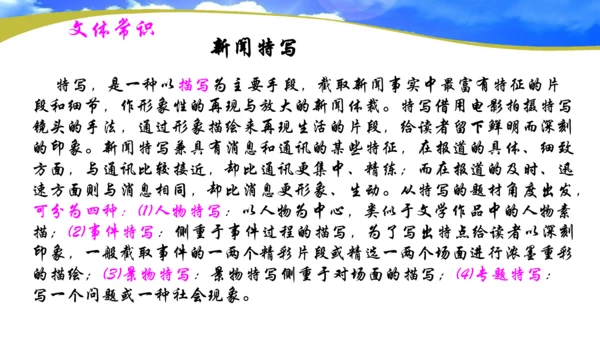 文体常识
新闻特写
特写，是一种以描写为主要手段，截取新闻事实中最富有特征的片
段和细节，作形象性的再现与放大的新闻体裁。特写借用电影拍摄特写
镜头的手法，通过形象描绘来再现生活的片段，给读者留下鲜明而深刻
的印象。新闻特写兼具有消息和通讯的某些特征，在报道的具体、细致
方面，与通讯比较接近，却比通讯更集中、精练；而在报道的及时、迅
速方面则与消息相同，却比消息更形象、生动。从特写的题材角度出发，
可分为四种：(1)人物特写：以人物为中心，类似于文学作品中的人物素
描；(2)事件特写：侧重于事件过程的描写，为了写出特点给读者以深刻
印象，一般截取事件的一两个精彩片段或精选一两个场面进行浓墨重彩
的描绘；(3)景物特写：景物特写侧重于对场面的描写；(4)专题特写：
写一个问题或一种社会现象。